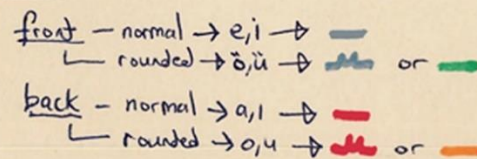 front – normal → e,i →
rounded → ö,ü → or
back – normal → a,ı →
rounded → o,u → or